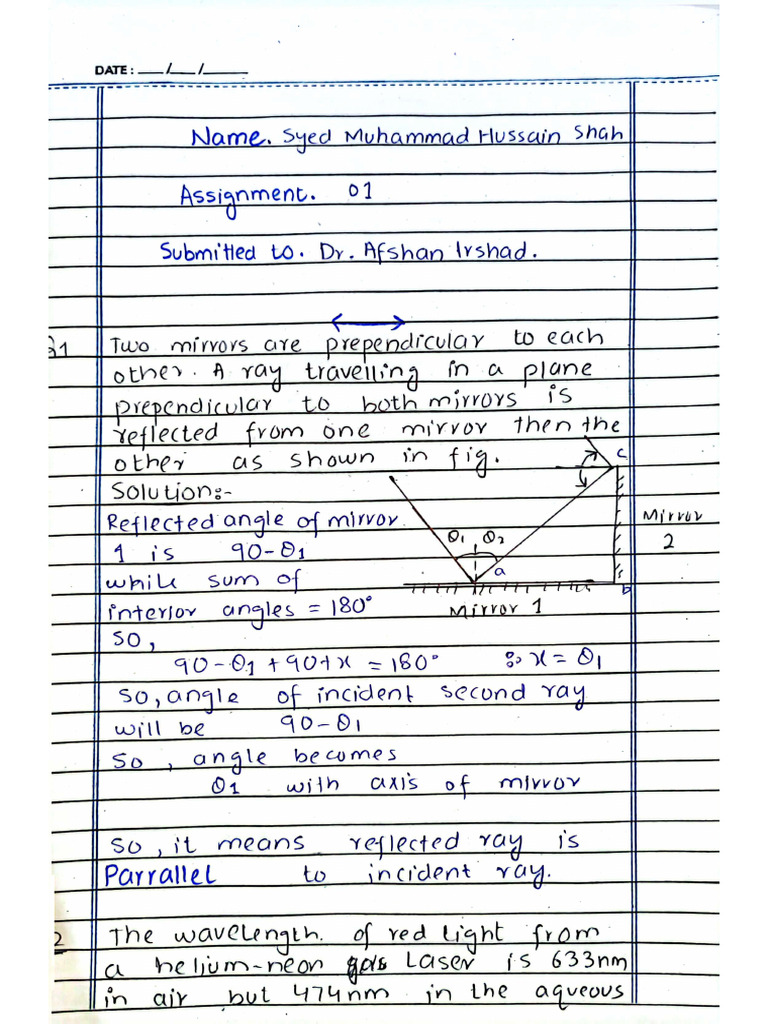 DATE: __/__/____
Name. Syed Muhammad Hussain Shah
Assignment. 01
Submitted to. Dr. Afshan Irshad.
Q1 Two mirrors are prependicular to each
other. A ray travelling in a plane
prependicular to both mirrors is
reflected from one mirror then the
other as shown in fig.
Solution:-
Reflected angle of mirror
1 is 90-θ1
while sum of
interior angles = 180°
so,
θ1 θ2
a
b
c
Mirror 1
Mirror
2
90-θ1+90+x = 180° ∴ x = θ1
so, angle of incident second ray
will be 90-θ1
so, angle becomes
θ1 with axis of mirror
so, it means reflected ray is
Parrallel to incident ray.
2 The wavelength. of red light from
a helium-neon gas Laser is 633nm
in air but 474nm in the aqueous